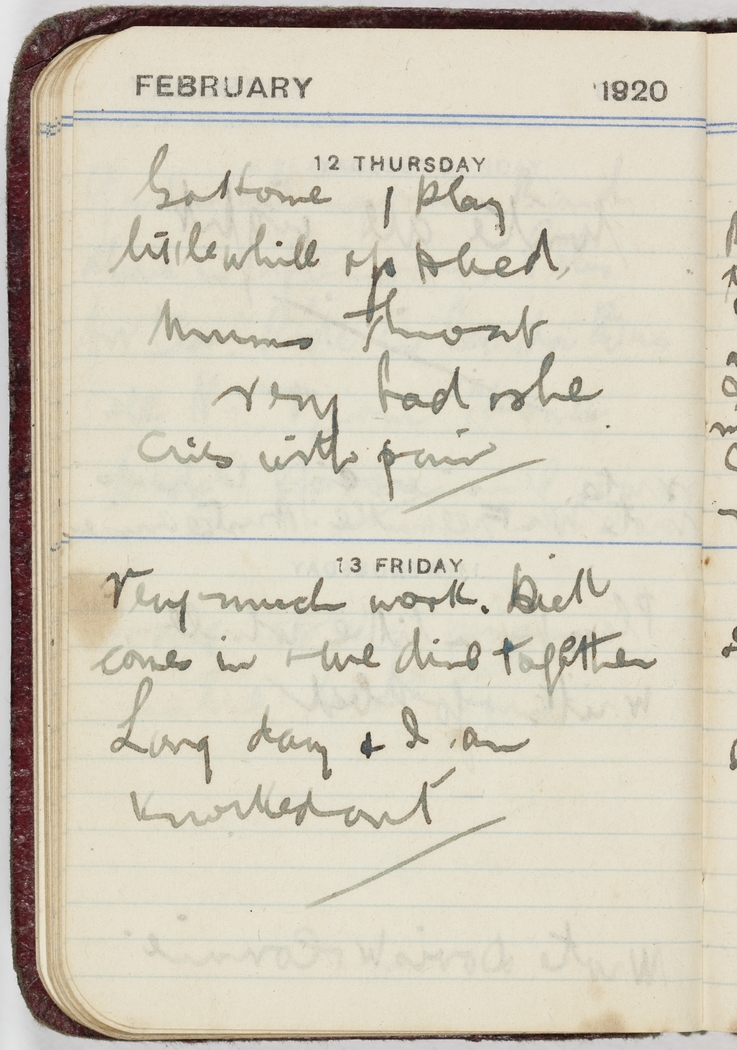 FEBRUARY 1920
12 THURSDAY
Go Home I play
little while up shed,
Mums throat
very bad & she
Cries with pain
13 FRIDAY
Very much work. Dick
comes in & we dine together
Long day & I am
knocked out